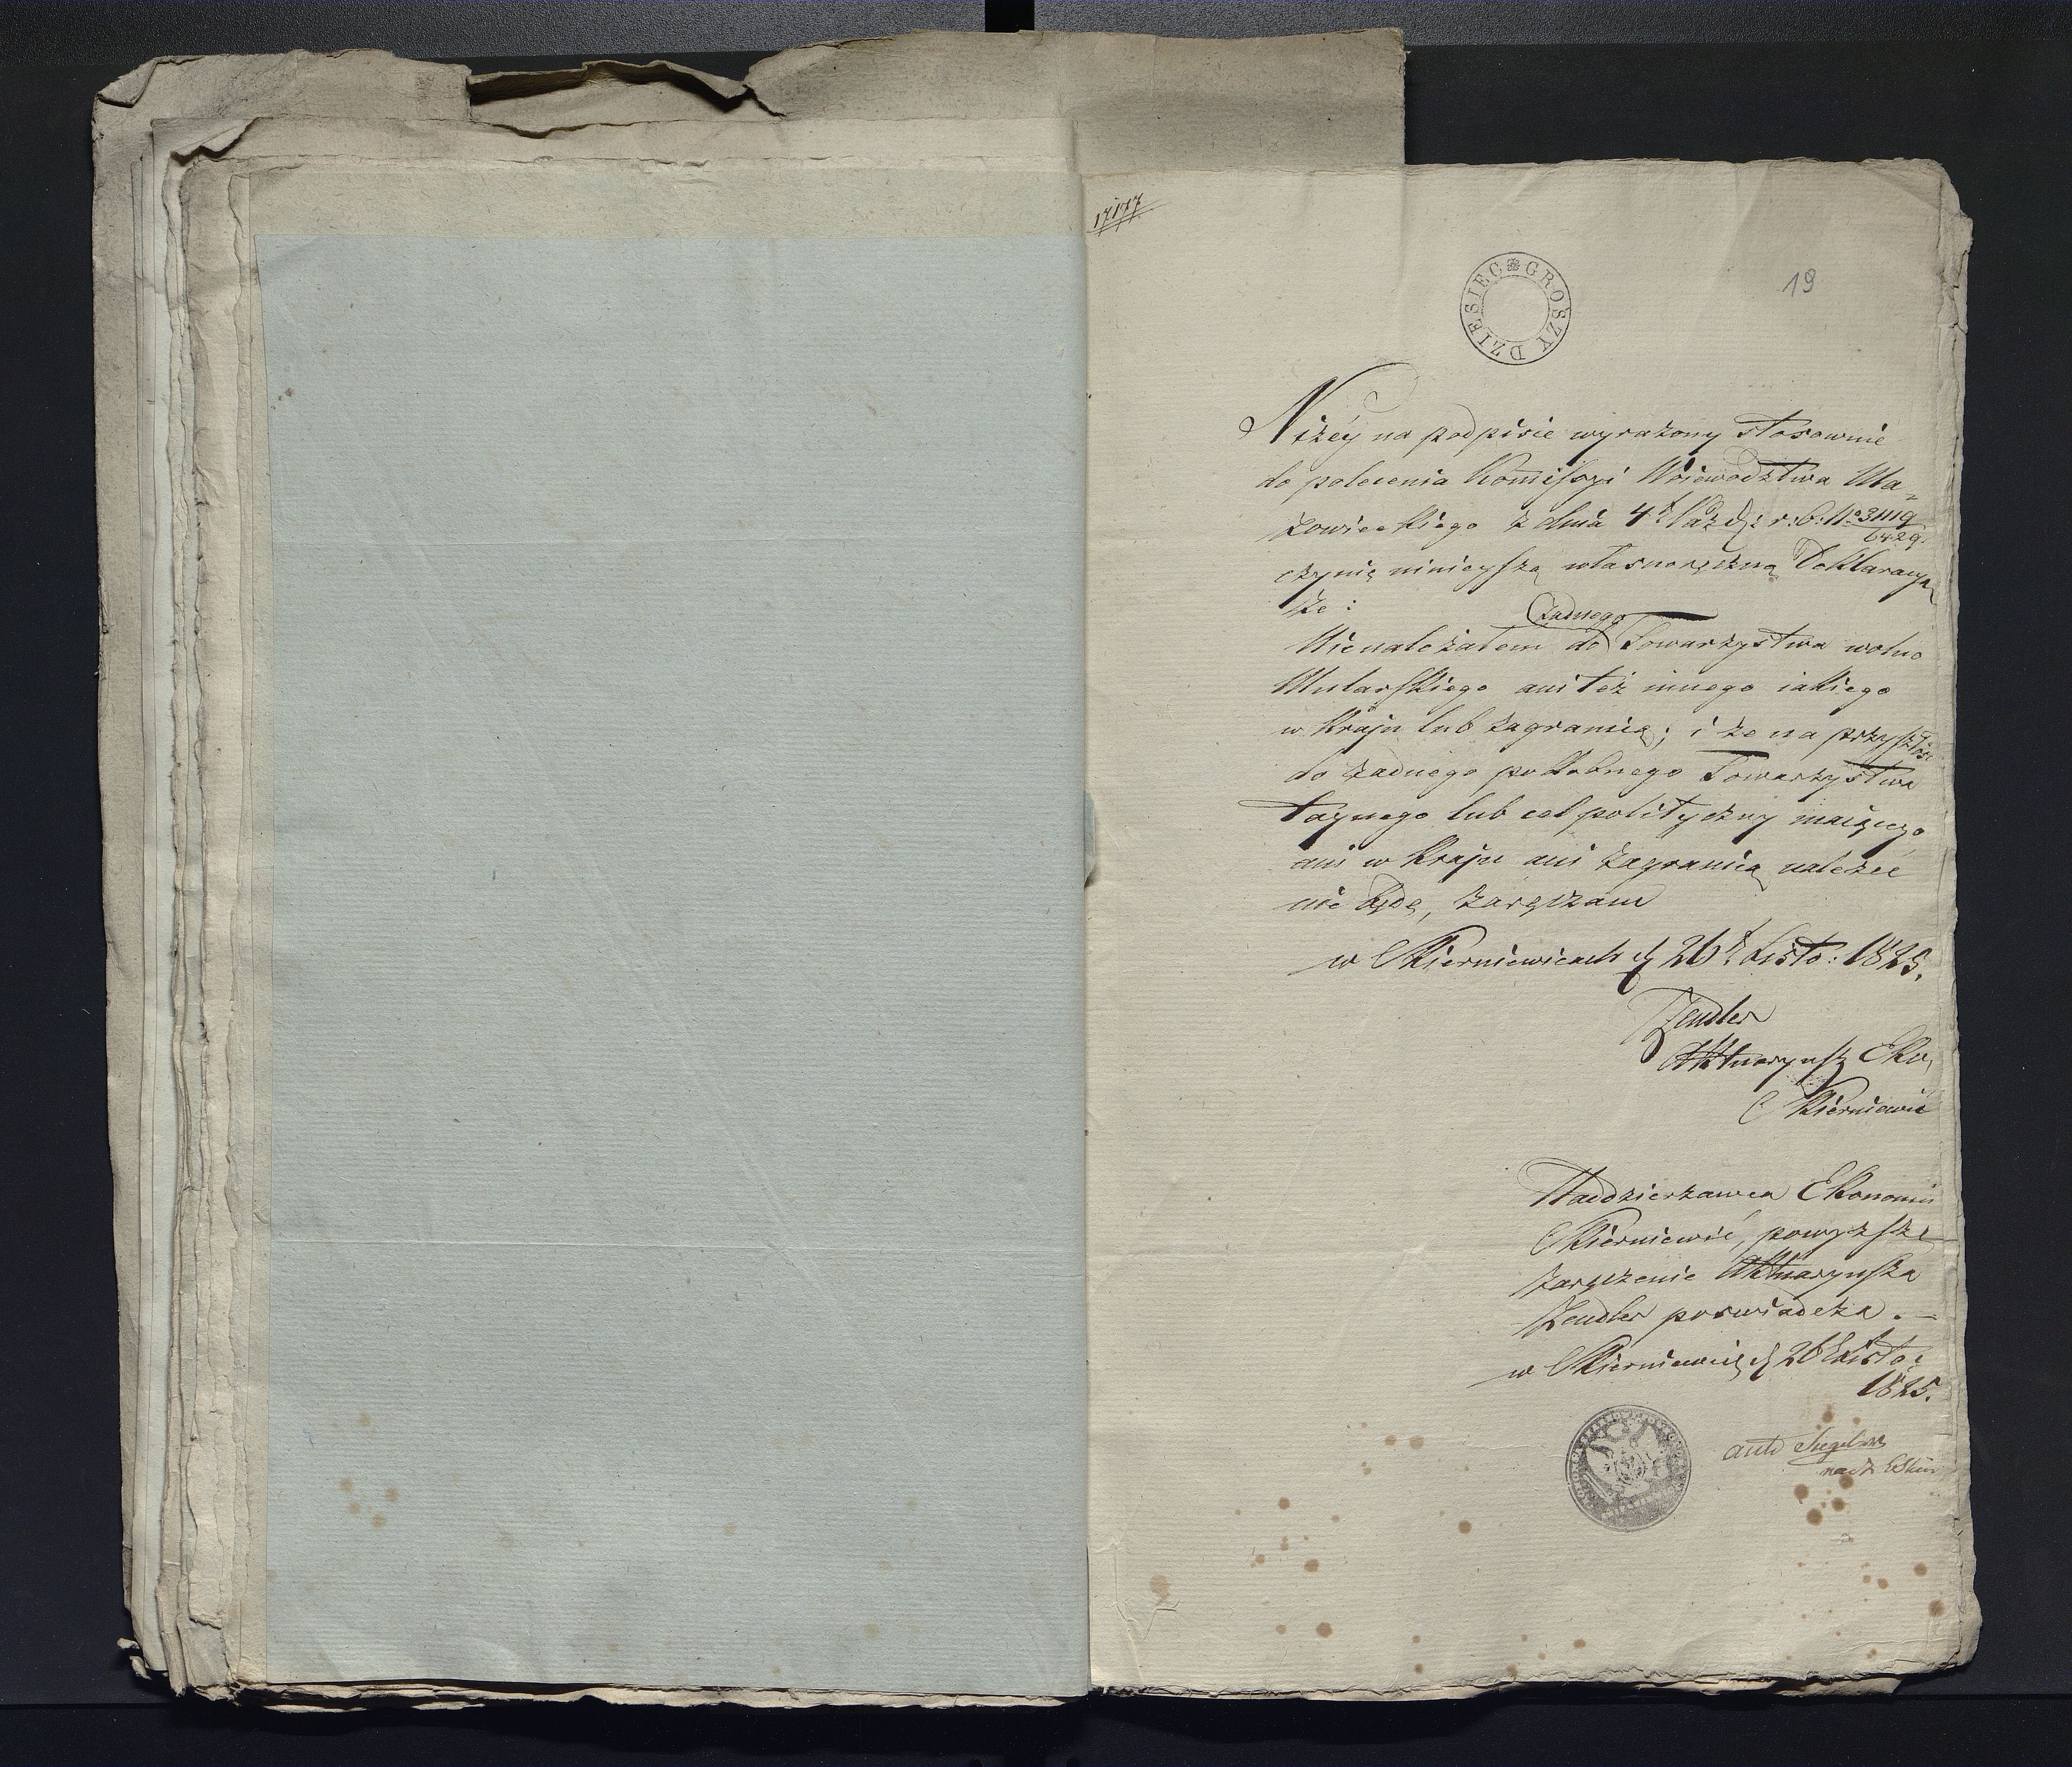 17177
19
DZIESIĘĆ GROSZY
Niżéy na podpisie wyrażony stosownie
do polecenia Kommissyi Województwa Ma=
zowieckiego z dnia 4 Paźdz: r: b: No 31119
6429.
czynię ninieyszą własnoręczną Deklaracyą
że:
żadnego
Nienależałem do Towarzystwa wolno
Mularskiego ani też innego iakiego
w Kraju lub zagranicą; i że na przyszłość
do żadnego podobnego Towarzystwa
taynego lub cel polityczny maiącego
ani w Kraju ani zagranicą należeć
nie będę, zaręczam
w Skierniewicach d 26 Listo: 1825.
Zendler
Aktuaryusz Eko,
Skierniewic
Naddzierżawca Ekonomii
Skierniewic, powyższe
zaręczenie Aktuaryusza
Zendler poswiadcza. —
w Skierniewic d 26 Listo:
1825.